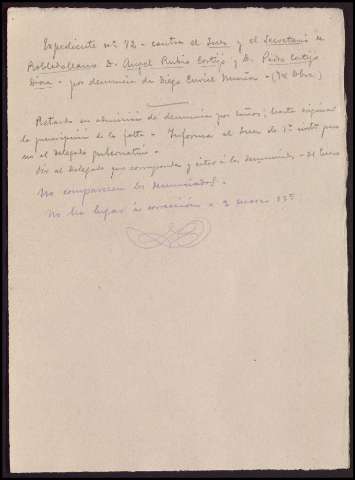 Expediente nº 72 - contra el Juez y el Secretario de
Robledollano D. Angel Rubio Cortijo y D. Pedro Cortijo
- por denuncia de Diego Curiel Muñoz -
Retardo en admisión de denuncia por daños, hasta originar
la prescripción de la falta - Informa el Juez de 1ª
al delegado gubernativo -
Oir al delegado que corresponda y citar a los denunciados - 24 Enero
No comparecen los denunciados -
No ha lugar a corrección a 2